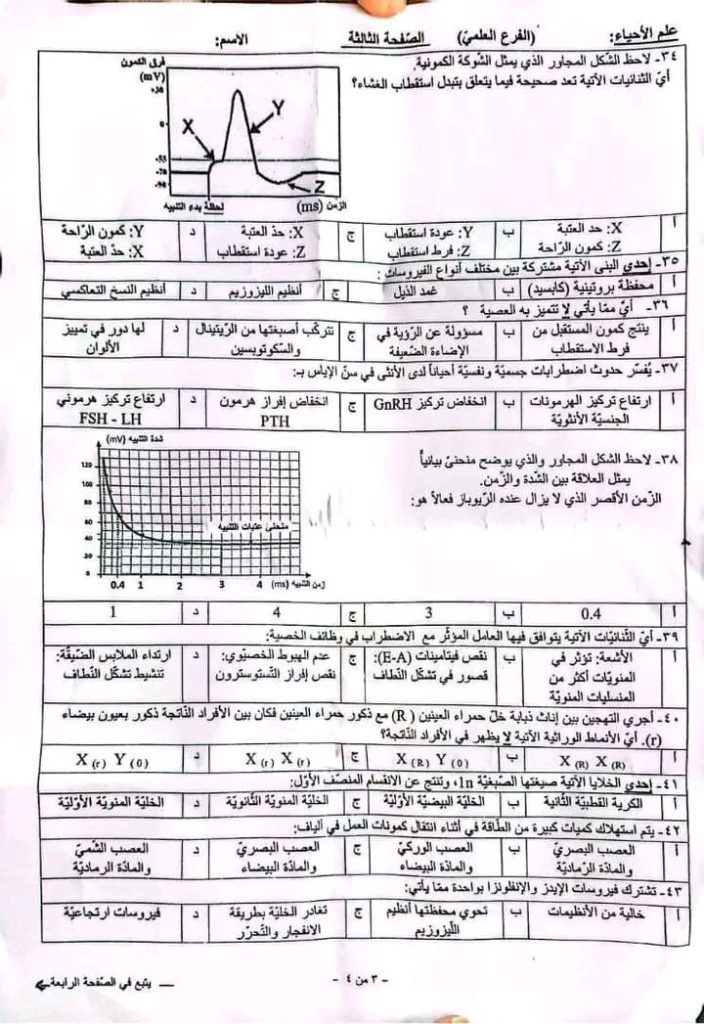 علم الأحياء: (الفرع العلميّ) الصّفحة الثالثة الاسم:
٣٤- لاحظ الشّكل المجاور الذي يمثل الشّوكة الكمونية.
أيّ الثنائيات الآتية تعد صحيحة فيما يتعلق بتبدل استقطاب الغشاء؟
فرق الكمون
(mV)
+30
0
-55
-70
-90
X
Y
Z
الزمن (ms) لحظة بدء التنبيه
أ X: حد العتبة ب Y: عودة استقطاب ج X: حدّ العتبة د Y: كمون الرّاحة
Z: كمون الرّاحة Z: فرط استقطاب Z: عودة استقطاب X: حدّ العتبة
٣٥- إحدى البنى الآتية مشتركة بين مختلف أنواع الفيروسات :
أ محفظة بروتينية (كابسيد) ب غمد الذيل ج أنظيم الليزوزيم د أنظيم النسخ التعاكسي
٣٦- أيّ ممّا يأتي لا تتميز به العصية ؟
أ ينتج كمون المستقبل من ب مسؤولة عن الرّؤية في ج تتركّب أصبغتها من الرّيتينال د لها دور في تمييز
فرط الاستقطاب الإضاءة الضّعيفة والسّكوتوبسين الألوان
٣٧- يُفسّر حدوث اضطرابات جسميّة ونفسيّة أحياناً لدى الأنثى في سنّ الإياس بـ:
أ ارتفاع تركيز الهرمونات ب انخفاض تركيز GnRH ج انخفاض إفراز هرمون د ارتفاع تركيز هرموني
الجنسيّة الأنثويّة PTH FSH - LH
٣٨- لاحظ الشكل المجاور والذي يوضح منحنىً بيانياً
يمثل العلاقة بين الشّدة والزّمن.
الزّمن الأقصر الذي لا يزال عنده الرّيوباز فعالاً هو:
شدة التنبيه (mV)
120
100
80
60
40
20
0
منحنى عتبات التنبيه
0.4 1 2 3 4 زمن التنبيه (ms)
أ 0.4 ب 3 ج 4 د 1
٣٩- أيّ الثّنائيّات الآتية يتوافق فيها العامل المؤثّر مع الاضطراب في وظائف الخصية:
أ الأشعة: تؤثر في ب نقص فيتامينات (E-A): ج عدم الهبوط الخصيّوي: د ارتداء الملابس الضيقّة:
المنويّات أكثر من قصور في تشكّل النّطاف نقص إفراز التّستوسترون تنشيط تشكّل النّطاف
المنسليات المنويّة
٤٠- أجري التهجين بين إناث ذبابة خلّ حمراء العينين (R) مع ذكور حمراء العينين فكان بين الأفراد النّاتجة ذكور بعيون بيضاء
(r). أيّ الأنماط الوراثية الآتية لا يظهر في الأفراد النّاتجة؟
أ X (R) X (R) ب X (R) Y (0) ج X (r) X (r) د X (r) Y (0)
٤١- إحدى الخلايا الآتية صيغتها الصّبغيّة 1n، وتنتج عن الانقسام المنصّف الأوّل:
أ الكرية القطبيّة الثّانية ب الخليّة البيضيّة الأوّليّة ج الخليّة المنويّة الثّانويّة د الخليّة المنويّة الأوّليّة
٤٢- يتم استهلاك كميات كبيرة من الطّاقة في أثناء انتقال كمونات العمل في ألياف:
أ العصب البصريّ ب العصب الوركيّ ج العصب البصريّ د العصب الشّميّ
والمادّة الرّماديّة والمادّة البيضاء والمادّة البيضاء والمادّة الرماديّة
٤٣- تشترك فيروسات الإيدز والإنفلونزا بواحدة ممّا يأتي:
أ خالية من الأنظيمات ب تحوي محفظتها أنظيم ج تغادر الخليّة بطريقة د فيروسات ارتجاعيّة
اللّيزوزيم الانفجار والتّحرّر
- ٣ من ٤ -
يتبع في الصّفحة الرابعة